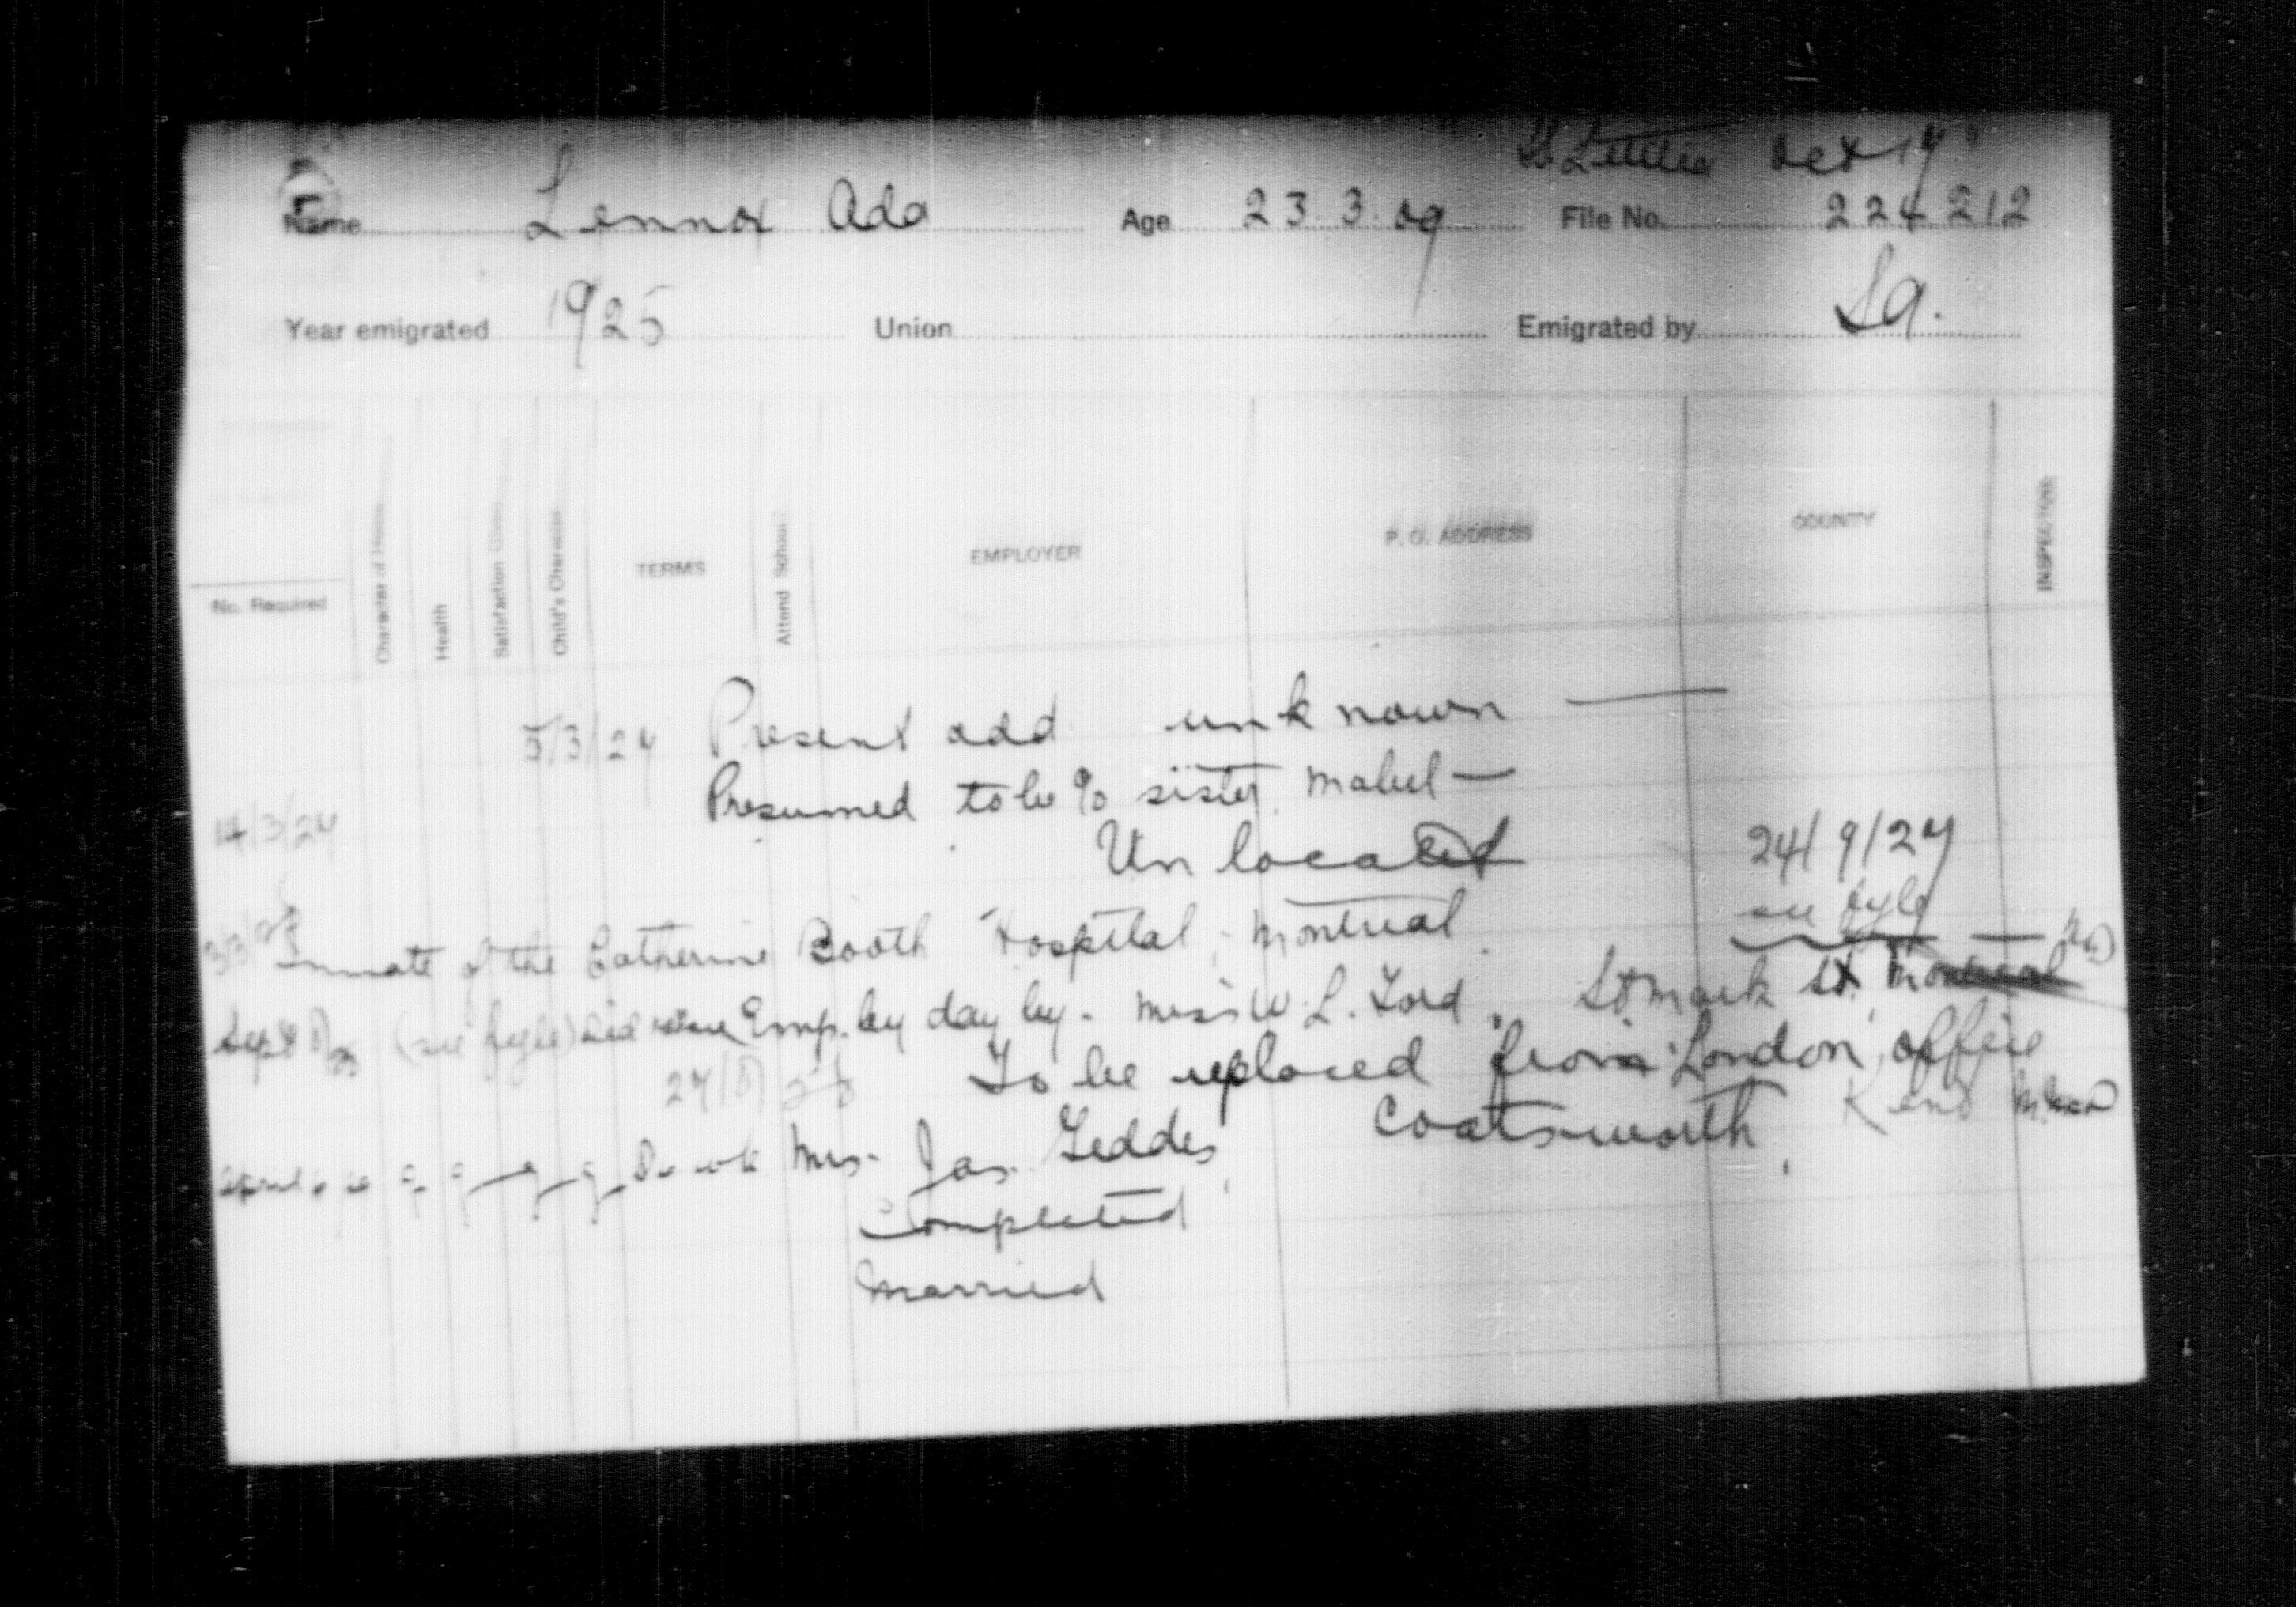 Oct 14
Name Lennox Ada Age 23.3.09 File No. 224212
Year emigrated 1925 Union Emigrated by S.A.
No. Required Character of Home Health Satisfaction Given Child's Character TERMS Attend School? EMPLOYER P. O. ADDRESS COUNTY INSPECTORS
5/3/27 Present add unknown —
Presumed to be c/o sister Mabel —
14/3/27
Unlocated 24/9/27
see fyle
3/3/28 Inmate of the Catherine Booth Hospital, Montreal
Sept (see fyle) Emp. by day by. Mrs W. L. Ford, St Mark St. Montreal
27/8/28 To be replaced from London office
April Mrs. Jas. Geddes, Coatsworth, Kent
Completed
Married